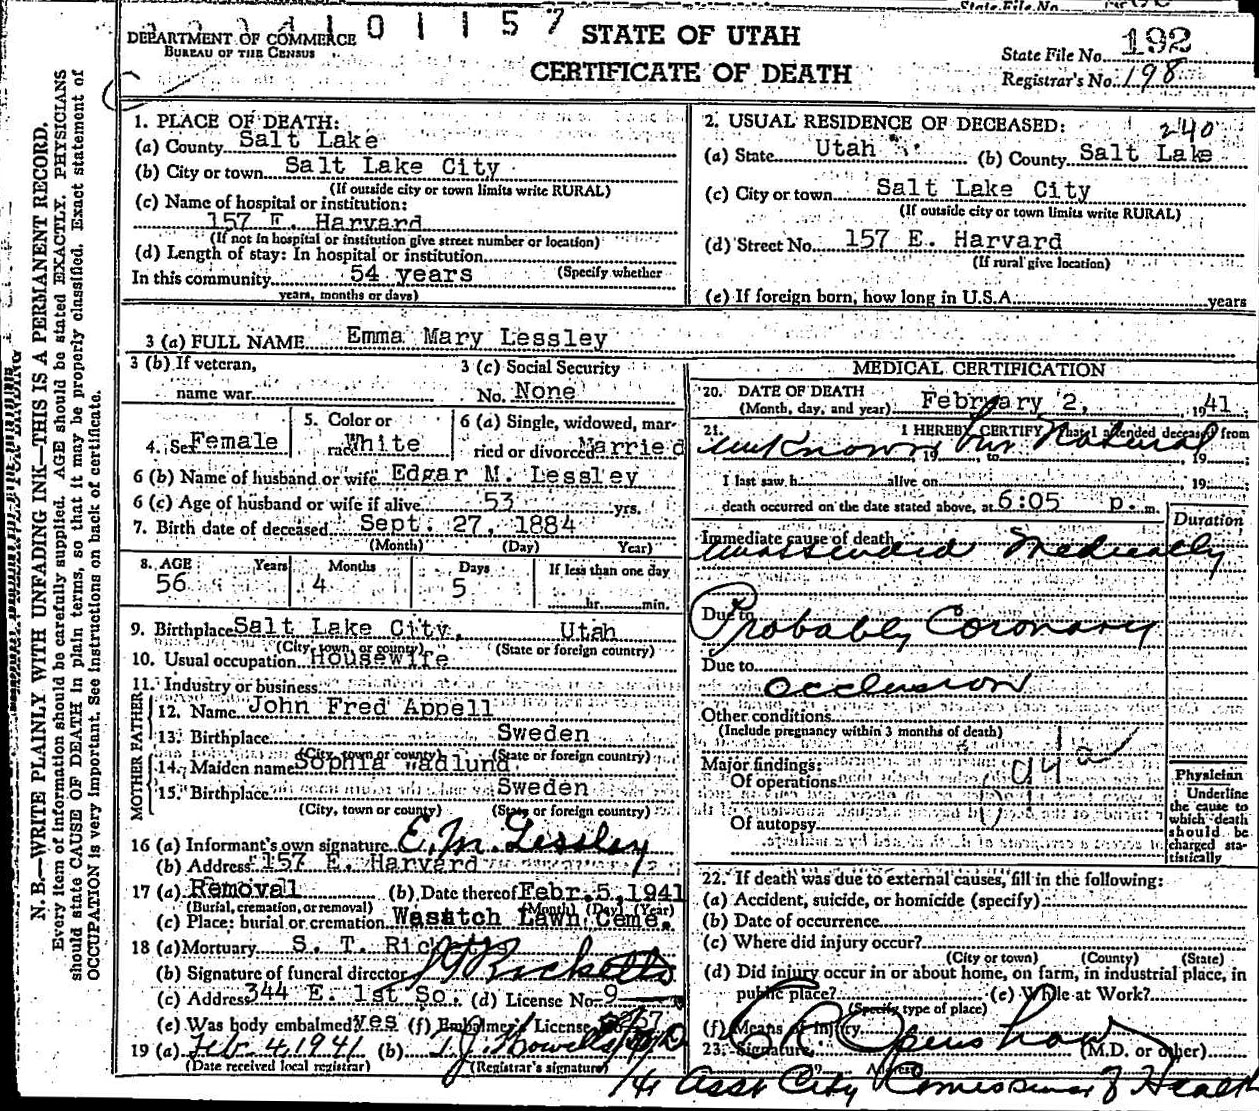 State File No.
0 1 1 5 7
DEPARTMENT OF COMMERCE
BUREAU OF THE CENSUS
STATE OF UTAH
CERTIFICATE OF DEATH
State File No. 192
Registrar's No. 198
N. B.—WRITE PLAINLY WITH UNFADING INK—THIS IS A PERMANENT RECORD.
Every item of information should be carefully supplied. AGE should be stated EXACTLY. PHYSICIANS
should state CAUSE OF DEATH in plain terms, so that it may be properly classified. Exact statement of
OCCUPATION is very important. See instructions on back of certificate.
1. PLACE OF DEATH:
(a) County Salt Lake
(b) City or town Salt Lake City
(If outside city or town limits write RURAL)
(c) Name of hospital or institution:
157 E. Harvard
(If not in hospital or institution give street number or location)
(d) Length of stay: In hospital or institution
In this community 54 years (Specify whether
years, months or days)
2. USUAL RESIDENCE OF DECEASED: 240
(a) State Utah (b) County Salt Lake
(c) City or town Salt Lake City
(If outside city or town limits write RURAL)
(d) Street No. 157 E. Harvard
(If rural give location)
(e) If foreign born, how long in U.S.A. years
3 (a) FULL NAME Emma Mary Lessley
3 (b) If veteran,
name war
3 (c) Social Security
No. None
4. Sex Female
5. Color or
race White
6 (a) Single, widowed, mar-
ried or divorced Married
6 (b) Name of husband or wife Edgar M. Lessley
6 (c) Age of husband or wife if alive 53 yrs.
7. Birth date of deceased Sept. 27, 1884
(Month) (Day) Year)
8. AGE Years Months Days If less than one day
56 4 5 hr. min.
9. Birthplace Salt Lake City, Utah
(City, town, or county) (State or foreign country)
10. Usual occupation Housewife
11. Industry or business
FATHER
12. Name John Fred Appell
13. Birthplace Sweden
(City, town or county) (State or foreign country)
MOTHER
14. Maiden name Sophia Wadlund
15. Birthplace Sweden
(City, town or county) (State or foreign country)
16 (a) Informant's own signature E. M. Lessley
(b) Address 157 E. Harvard
17 (a) Removal (b) Date thereof Febr. 5, 1941
(Burial, cremation, or removal) (Month) (Day) (Year)
(c) Place: burial or cremation Wasatch Lawn Ceme.
18 (a) Mortuary S. T.
(b) Signature of funeral director Ricketts
(c) Address 344 E. 1st So. (d) License No. 9
(e) Was body embalmed? Yes (f) Embalmer's License
19 (a) Feb. 4, 1941 (b) T. J. Howells
(Date received local registrar) (Registrar's signature)
MEDICAL CERTIFICATION
20. DATE OF DEATH
(Month, day, and year) February 2, 1941
21. I HEREBY CERTIFY, That I attended deceased from
unknown but Natural , 19 , to , 19 ;
I last saw h alive on , 19 ;
death occurred on the date stated above, at 6:05 p. m.
Duration
Immediate cause of death
unattended Medically
Due to Probably Coronary
Due to
occlusion
Other conditions
(Include pregnancy within 3 months of death)
94a
Major findings:
Of operations
Of autopsy
Physician
Underline
the cause to
which death
should be
charged sta-
tistically
22. If death was due to external causes, fill in the following:
(a) Accident, suicide, or homicide (specify)
(b) Date of occurrence
(c) Where did injury occur?
(City or town) (County) (State)
(d) Did injury occur in or about home, on farm, in industrial place, in
public place? (e) While at Work?
(Specify type of place)
(f) Means of injury
23. Signature Openshaw (M.D. or other)
Address
Asst City Commissioner of Health